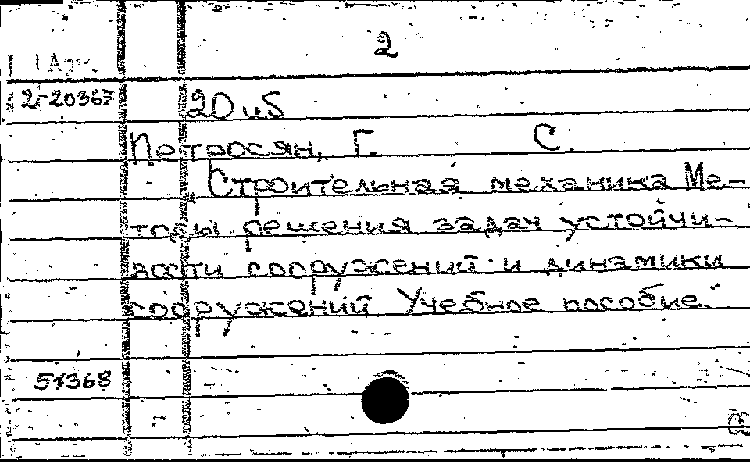 2
2-20367
Петросян, Г. С.
„Строительная механика Ме-
тоды решения задач устойчи-
вости сооружений и динамики
сооружений Учебное пособие."
51368